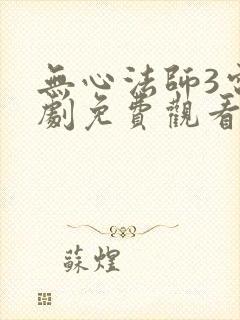 無心法師3電
劇免費觀看
蘇煌